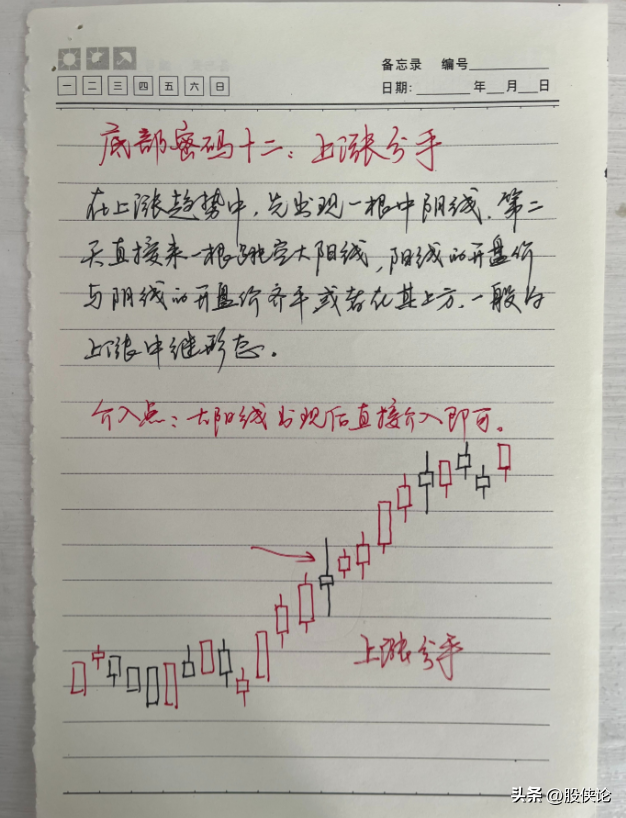 备忘录 编号
一 二 三 四 五 六 日
日期: 年 月 日
底部密码十二：上涨分手
在上涨趋势中，先出现一根中阴线，第二
天直接来一根跳空大阳线，阳线的开盘价
与阴线的开盘价齐平或者在其上方，一般为
上涨中继形态。
介入点：大阳线出现后直接介入即可。
上涨分手
头条 @股侠论